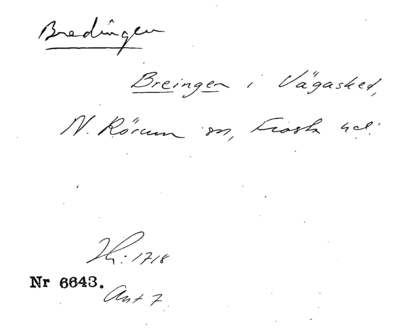 Bredingen
Breingen i Vägasked,
N. Rörum sn, Frosta hd.
Jb: 1718
Nr 6643.
Ant 7.